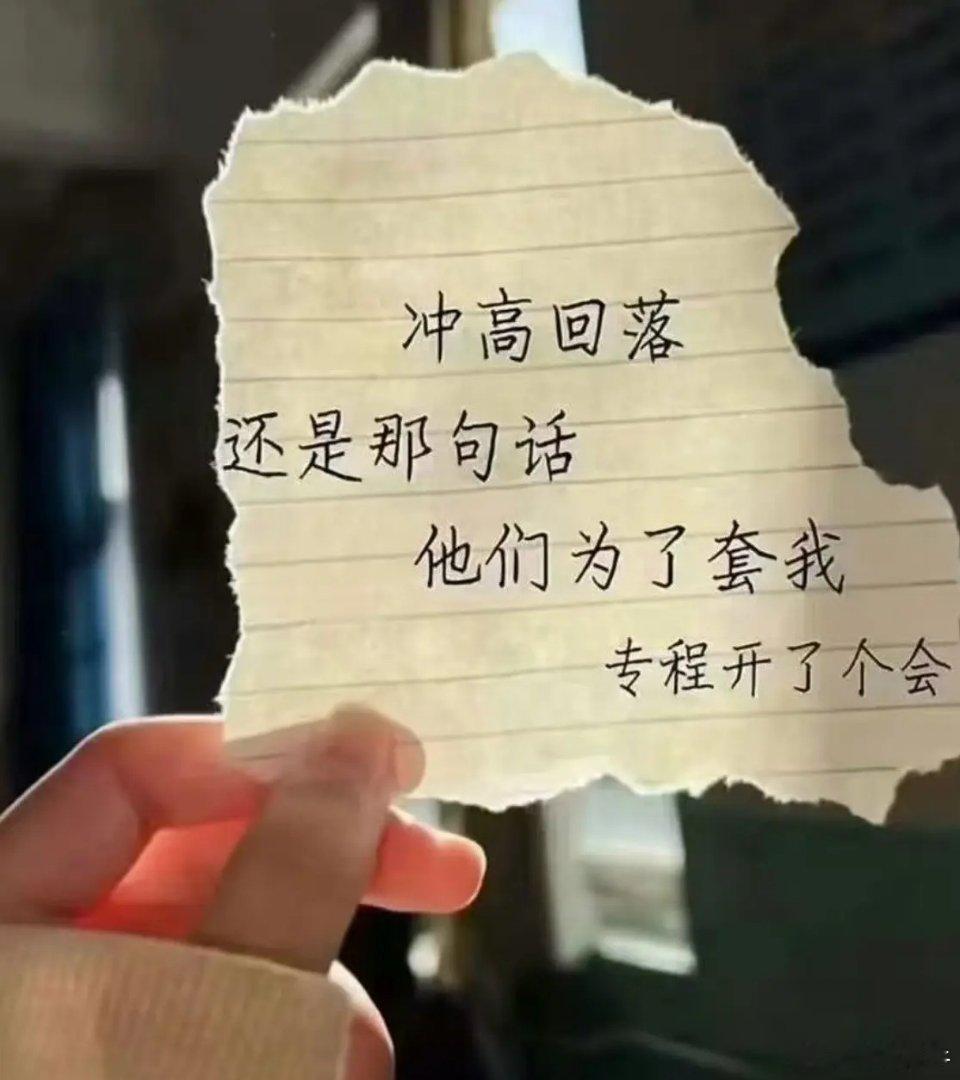 冲高回落
还是那句话
他们为了套我
专程开了个会